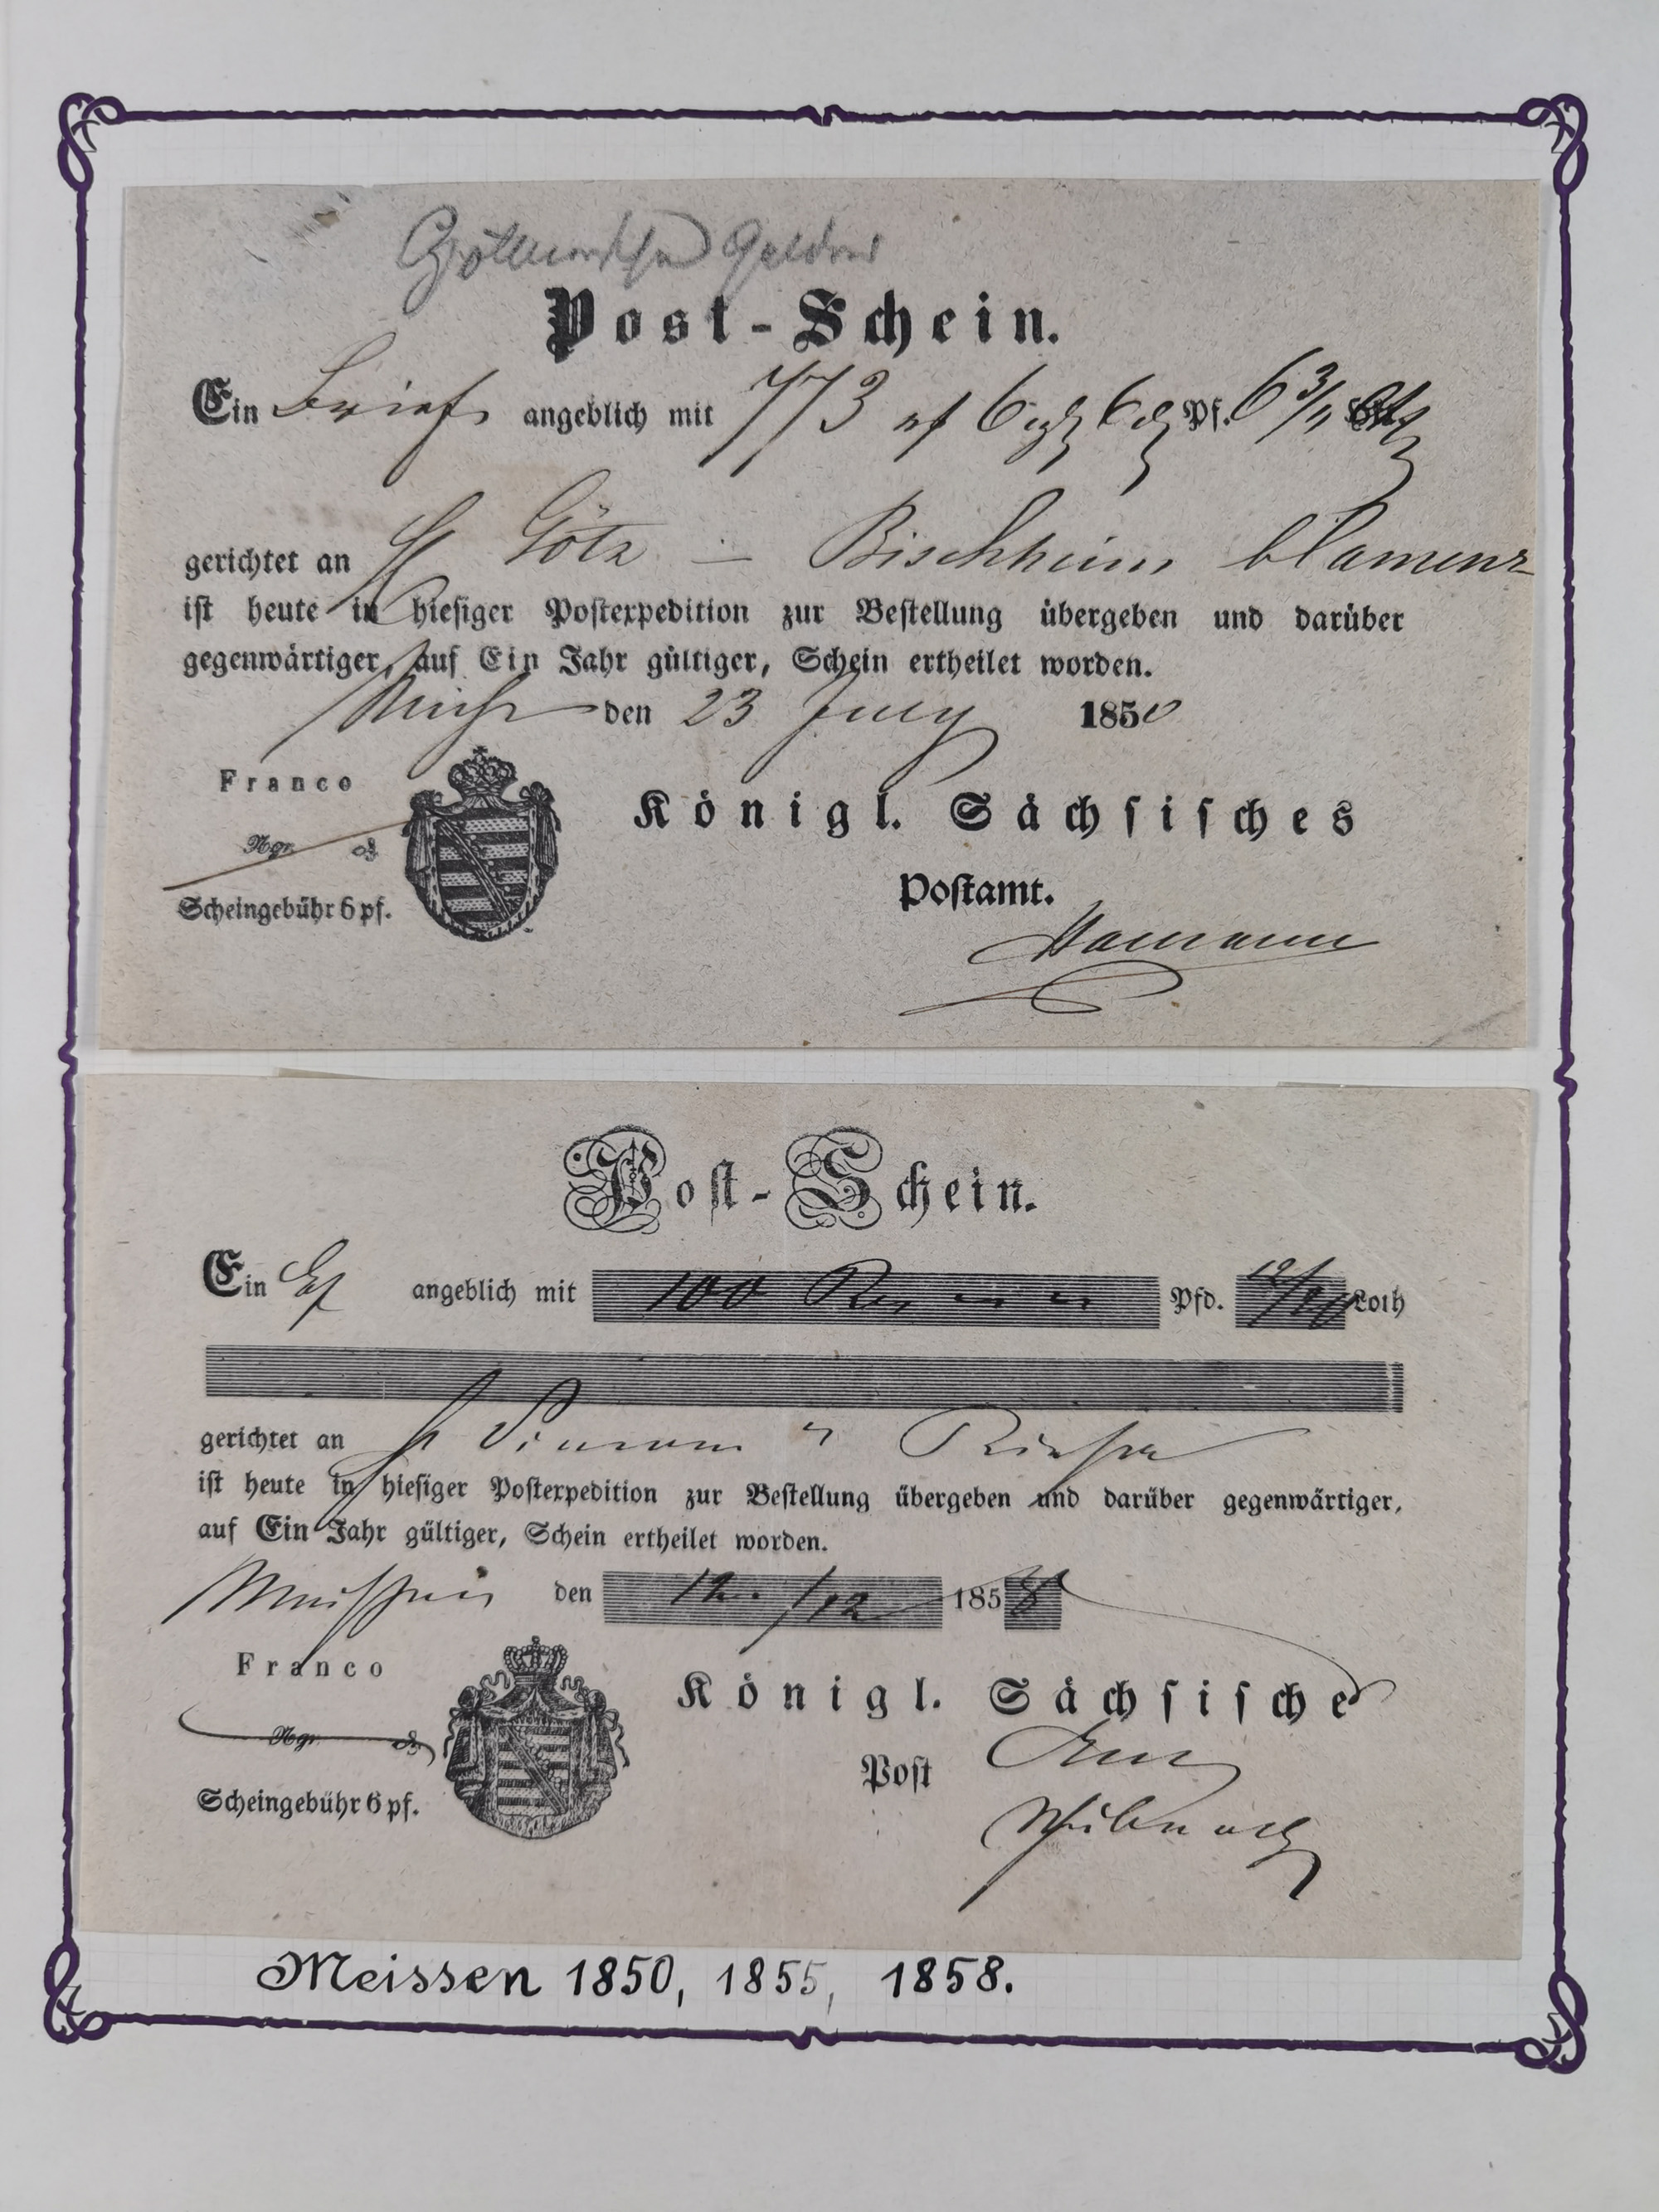 Post-Schein.
Ein Brief angeblich mit 773 rf 6 ngr 6 d Pf. 6 3/4
gerichtet an H Götz – Bischheim b Camenz
ist heute in hiesiger Postexpedition zur Bestellung übergeben und darüber
gegenwärtiger, auf Ein Jahr gültiger, Schein ertheilet worden.
den 23 July 1850
Franco
Ngr. ₰
Scheingebühr 6 pf.
Königl. Sächsisches
Postamt.
Post-Schein.
Ein angeblich mit 100 Pfd. Loth
gerichtet an H Riesa
ist heute in hiesiger Postexpedition zur Bestellung übergeben und darüber gegenwärtiger,
auf Ein Jahr gültiger, Schein ertheilet worden.
Meißen den 12. /12 1858
Franco
Ngr. ₰
Scheingebühr 6 pf.
Königl. Sächsische
Post
Meissen 1850, 1855, 1858.